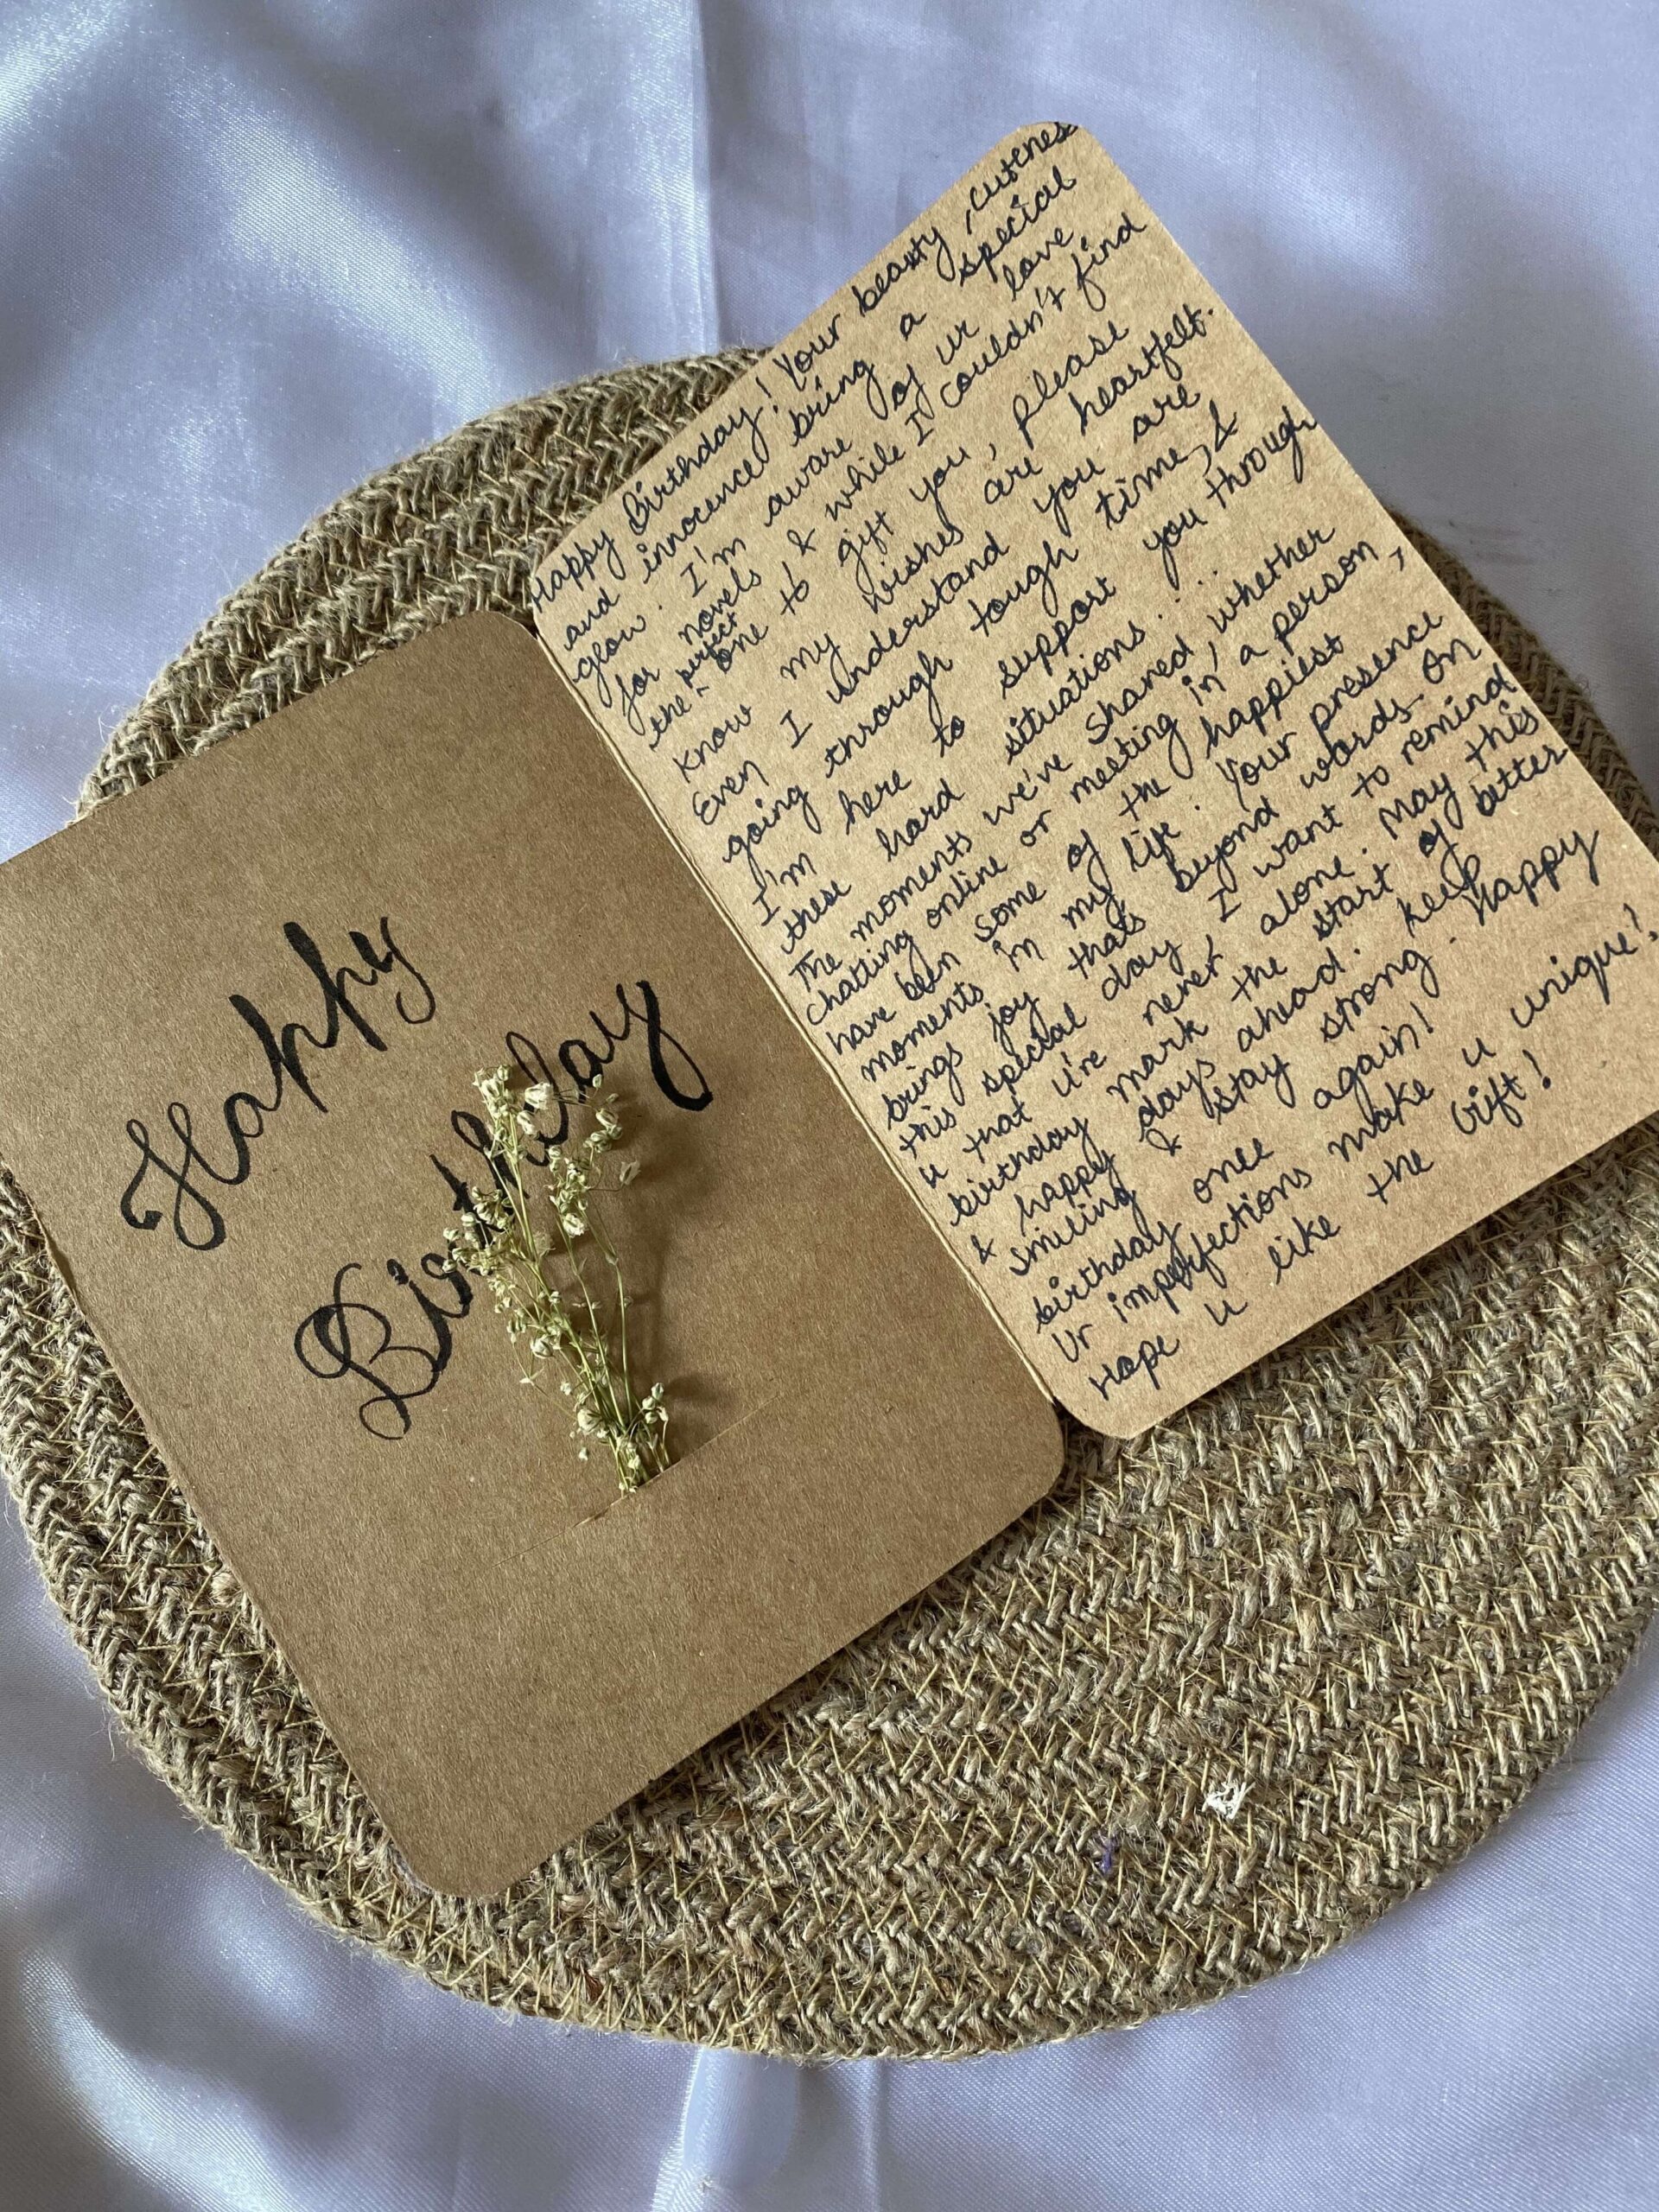 Happy
Birthday
Happy Birthday! Your beauty, cutenes
and innocence bring a special
glow. I'm aware of ur love
for novels & while I couldn't find
the perfect one to gift you, please
know my wishes are heartfelt.
Even I understand you are
going through tough time, &
I'm here to support you through
these hard situations...
The moments we've shared, whether
chatting online or meeting in a person,
have been some of the happiest
moments in my life. Your presence
brings joy thats beyond words. On
this special day, I want to remind
u that u're never alone. May this
birthday mark the start of better
& happy days ahead. keep
smiling & stay strong. Happy
birthday once again!
Ur imperfections make u unique!
Hope u like the Gift!